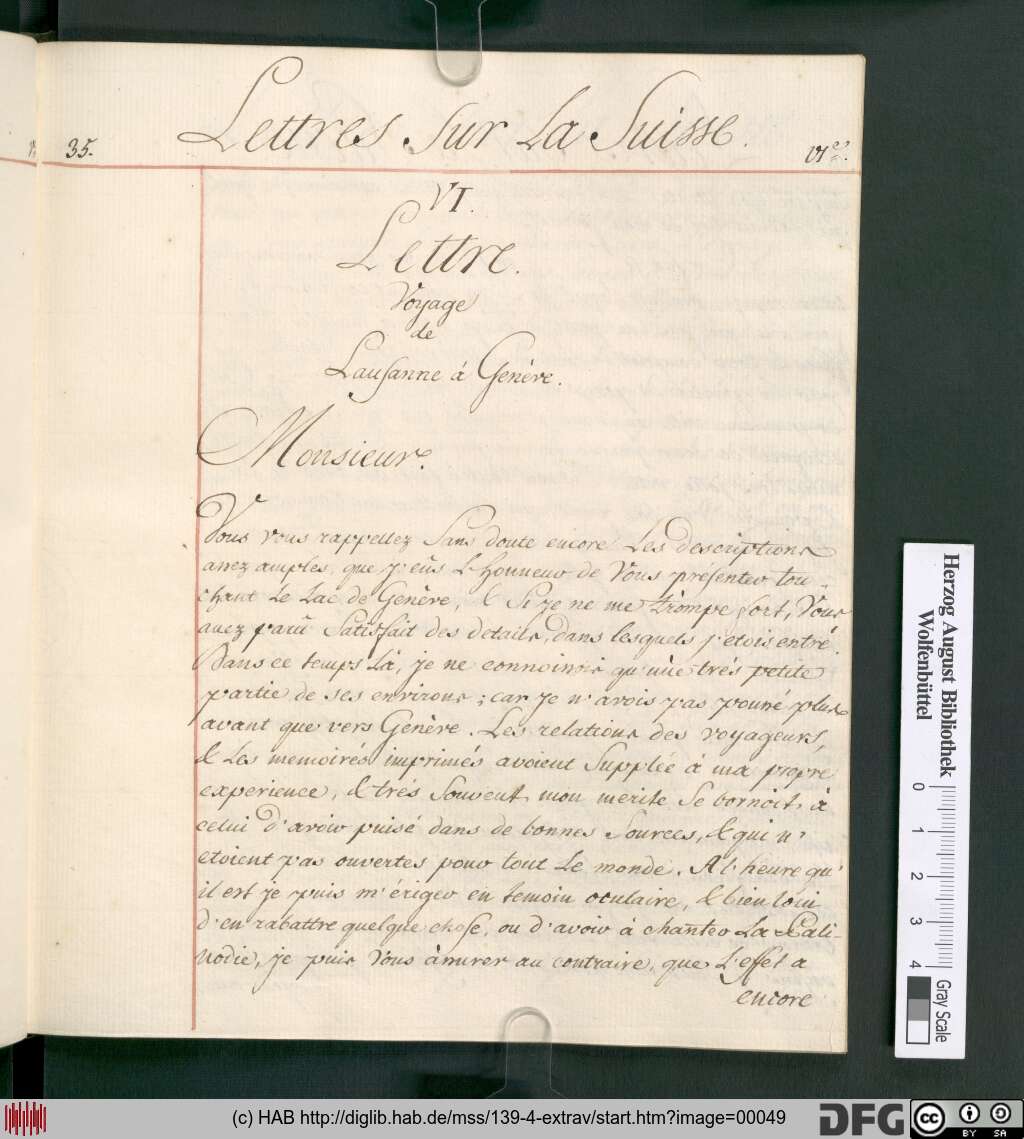 Lettres sur la Suisse.
35.
VI.
Lettre.
Voyage
de
Lausanne á Genêve.
Monsieur.
Vous vous rappellez sans doute encore les descriptions
assez amples, que j'eûs l'honneur de Vous présenter tou-
chant le Lac de Genêve, & si je ne me trompe fort, Vous
avez parû satisfait des details, dans lesquels j'etois entré.
Dans ce temps là, je ne connoissois qu'une trés petite
partie de ses environs; car je n'avois pas poussé plus
avant que vers Genêve. Les relations des voyageurs,
& les memoirés imprimés avoient supplée à ma propre
experience, & trés souvent mon merite se bornoit à
celui d'avoir puisé dans de bonnes sources, & qui n'
etoient pas ouvertes pour tout le monde. A l'heure qu'
il est je puis m'ériger en temoin oculaire, & bien loin
d'en rabattre quelque chose, ou d'avoir à chanter la Pali-
nodie, je puis Vous àssurer au contraire, que l'effet a
encore
Herzog August Bibliothek
Wolfenbüttel
0 1 2 3 4
Gray Scale
(c) HAB http://diglib.hab.de/mss/139-4-extrav/start.htm?image=00049
DFG
cc BY SA